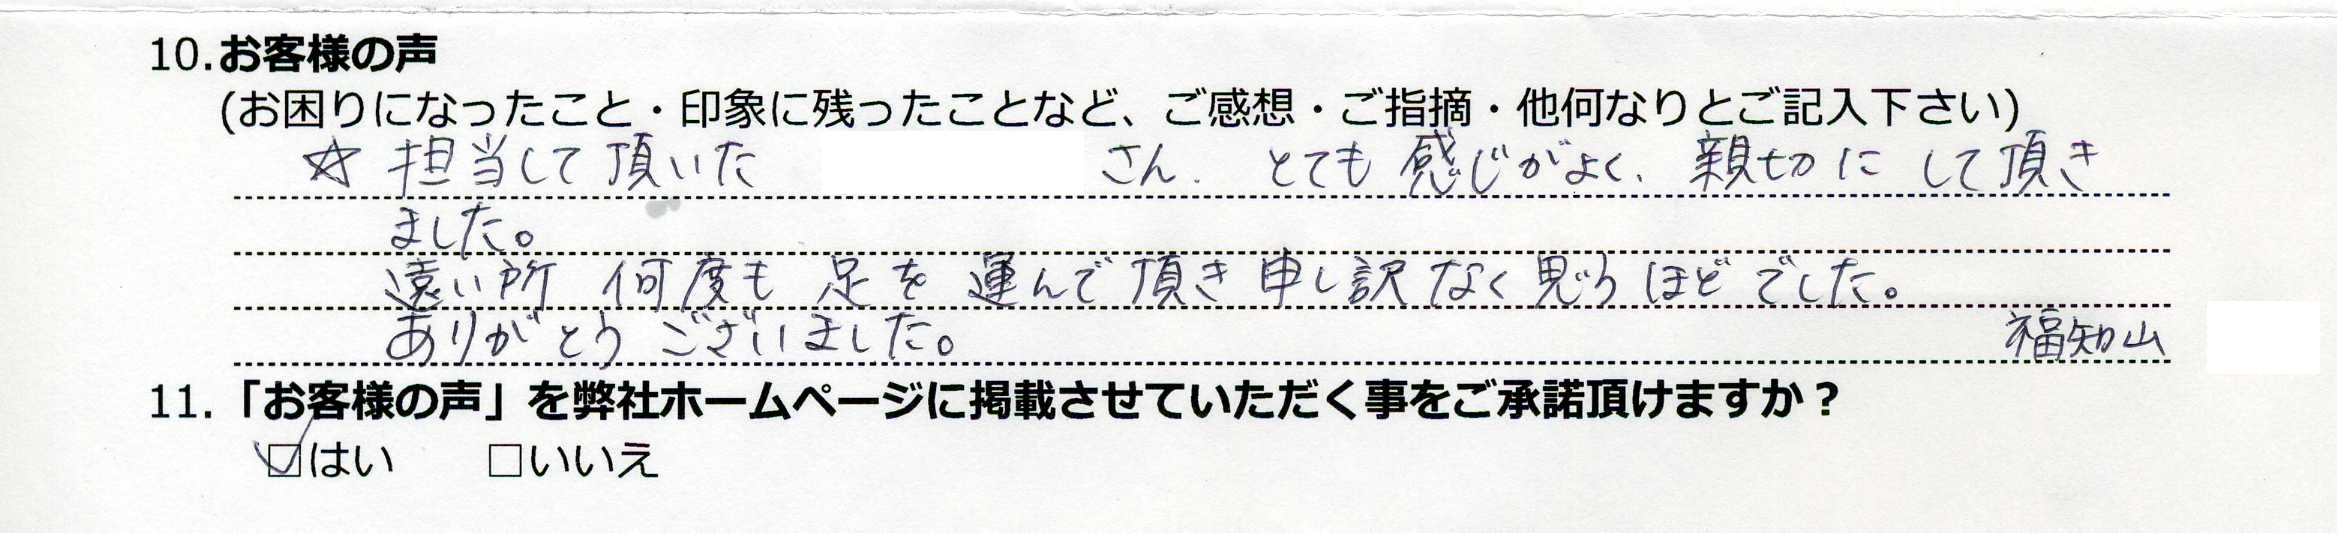 10.お客様の声
(お困りになったこと・印象に残ったことなど、ご感想・ご指摘・他何なりとご記入下さい)
☆ 担当して頂いた さん. とても感じがよく、親切にして頂き
ました。
遠い所 何度も足を運んで頂き申し訳なく思うほどでした。
ありがとうございました。 福知山
11.「お客様の声」を弊社ホームページに掲載させていただく事をご承諾頂けますか？
☑はい □いいえ